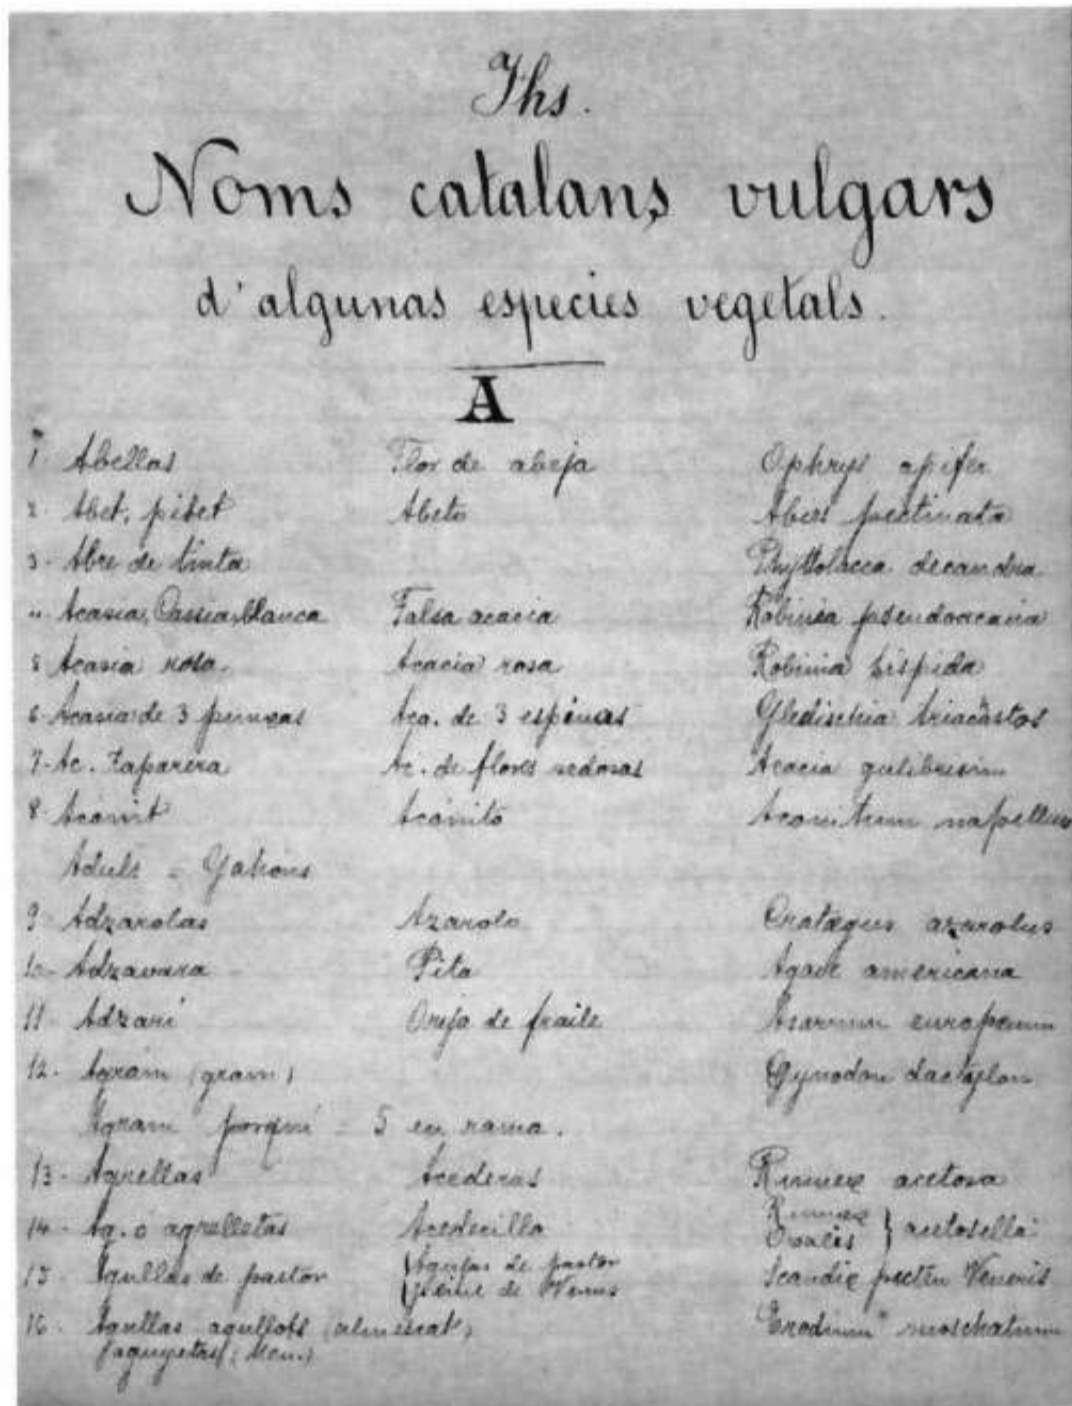 Jhs.
Noms catalans vulgars
d'algunas especies vegetals.
A
1 Abellas Flor de abeja Ophrys apifer
2 Abet, pibet Abeto Abies pectinata
3 Abre de tinta Phyttolacca decandra
4 Acasia, Cassia blanca Falsa acacia Robinia pseudoacacia
5 Acasia rosa. Acacia rosa Robinia hispida
6 Acasia de 3 punxas Aca. de 3 espinas Gledischia triacastos
7 Ac. Taparera Ac. de flores sedosas Acacia
8 Aconit Aconito Aconitum napellus
Aduls =
9 Adzarolas Azarolo Crataegus azarolus
10 Adzavara Pita Agave americana
11 Adzari Oreja de fraile Asarum europeum
12. Agram (gram) Cynodon dactylon
Agram porqui = 5 en rama.
13 - Agrellas Acederas Rumex acetosa
14 - Ag. o agrelletas Acedecilla Rumex Oxalis } acetosella
15 Agullas de pastor { Agujas de pastor Peine de Venus Scandix pecten Veneris
16 - Agullas agullots (almescat) Erodium moschatum
(aguyetas) (Men.)